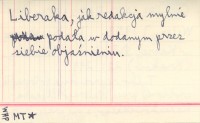 Liberaka, jak redakcja mylnie
podała w dodanym przez
siebie objaśnieniu.
MT*